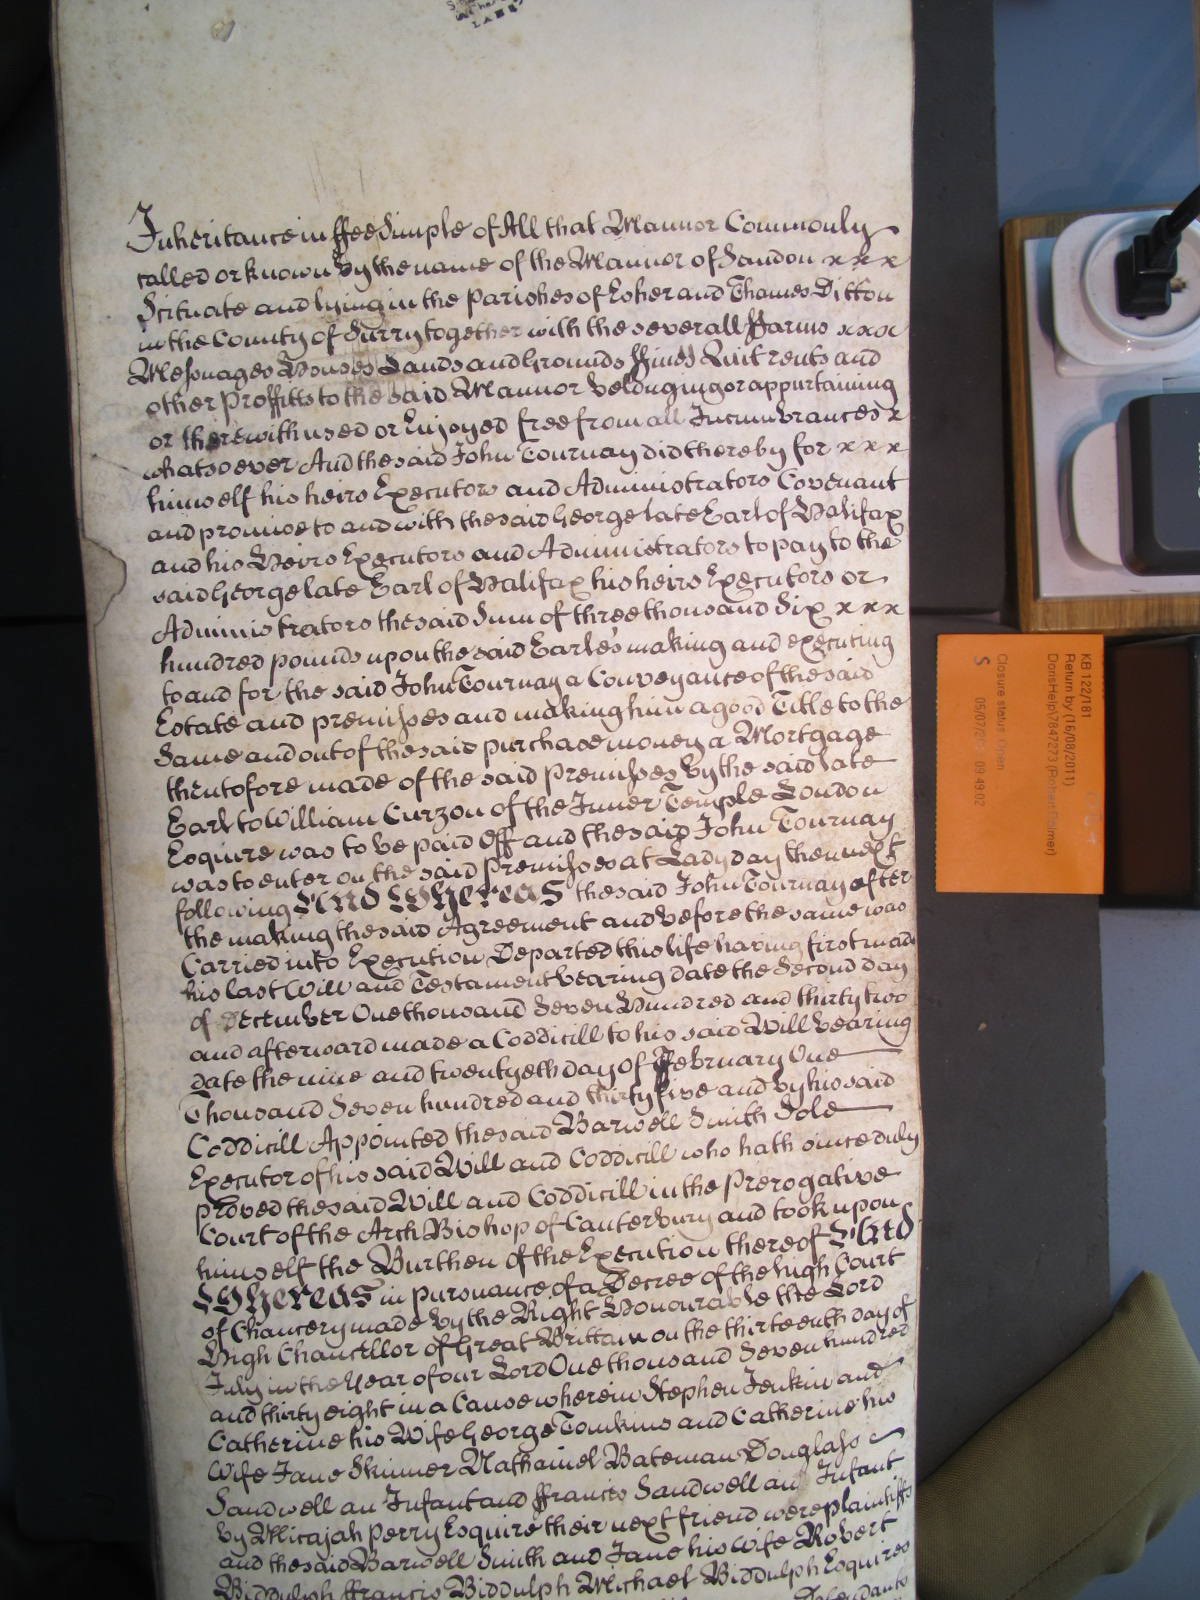 LANDS
Inheritance in ffee Simple of All that Mannor Commonly
called or known by the name of the Mannor of Sandon x x x
Scituate and lying in the Parishes of Esher and Thames Ditton
in the County of Surry together with the severall ffarms x x x
Messuages Houses Lands and Grounds ffines Quit rents and
other Proffitts to the said Mannor belonging or appurtaining
or therewith used or Enjoyed free from all Incumbrances x
whatsoever And the said John Tournay did thereby for x x x
himself his heirs Executors and Administrators Covenant
and promise to and with the said George late Earl of Halifax
and his Heirs Executors and Administrators to pay to the
said George late Earl of Halifax his heirs Executors or
Administrators the said Sum of three thousand Six x x x
hundred pounds upon the said Earle's making and executing
to and for the said John Tournay a Conveyance of the said
Estate and premisses and making him a good Title to the
Same and out of the said purchase money a Mortgage
thentofore made of the said Premisses by the said late
Earl to William Curzon of the Inner Temple London
Esquire was to be paid Off and the said John Tournay
was to enter on the said Premisses at Lady day then next
following And Whereas the said John Tournay after
the making the said Agreement and before the same was
Carried into Execution Departed this life having first made
his last Will and Testament bearing date the Second day
of December One thousand Seven Hundred and thirty two
and afterward made a Coddicill to his said Will bearing
date the nine and twentyeth day of ffebruary One
Thousand Seven hundred and thirty five and by his said
Coddicill Appointed the said Barwell Smith Sole
Executor of his said Will and Coddicill who hath since duly
proved the said Will and Coddicill in the Prerogative
Court of the Arch Bishop of Canterbury and took upon
himself the Burthen of the Execution thereof And
Whereas in pursuance of a Decree of the high Court
of Chancery made by the Right Honourable the Lord
High Chancellor of Great Brittain on the thirteenth day of
July in the Year of our Lord One thousand Seven hundred
and thirty eight in a Cause wherein Stephen Jenkin and
Catherine his Wife George Tomkins and Catherine his
Wife Jane Skinner Nathaniel Bateman Douglass
Sandwell an Infant and ffrancis Sandwell an Infant
by Micajah Perry Esquire their next friend were plaintiffs
and the said Barwell Smith and Jane his Wife Robert
Biddulph ffrancis Biddulph Michael Biddulph Esquires
Defendants
KB 122/181
Return by (16/08/2011)
DorisHelp\7847273 (Robert Palmer)
Closure status: Open
S 05/07/20 09:49:02